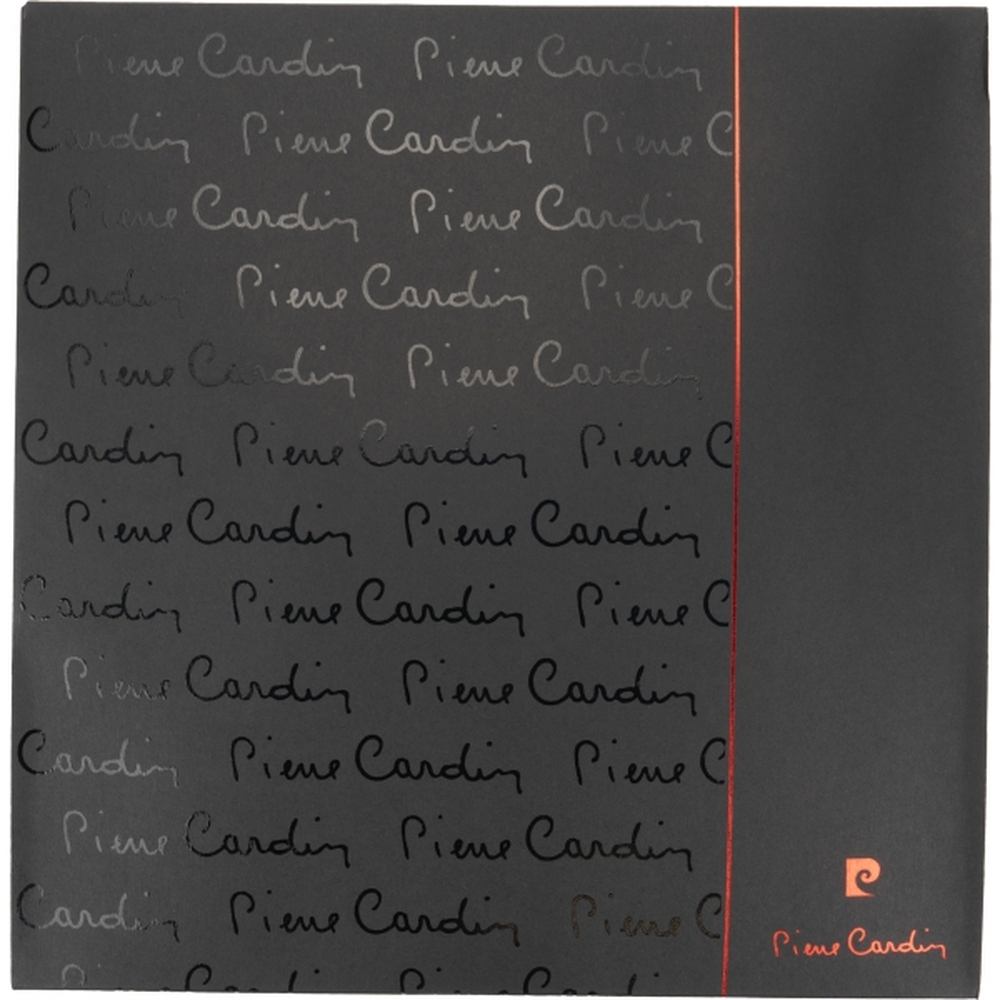 Pierre Cardin Pierre Cardin
Cardin Pierre Cardin Pierre C
Pierre Cardin Pierre Cardin
Cardin Pierre Cardin Pierre C
Pierre Cardin Pierre Cardin
Cardin Pierre Cardin Pierre C
Pierre Cardin Pierre Cardin
Cardin Pierre Cardin Pierre C
Pierre Cardin Pierre Cardin
Cardin Pierre Cardin Pierre C
Pierre Cardin Pierre Cardin
Cardin Pierre Cardin Pierre C
Pierre Cardin Pierre Cardin
Pierre Cardin